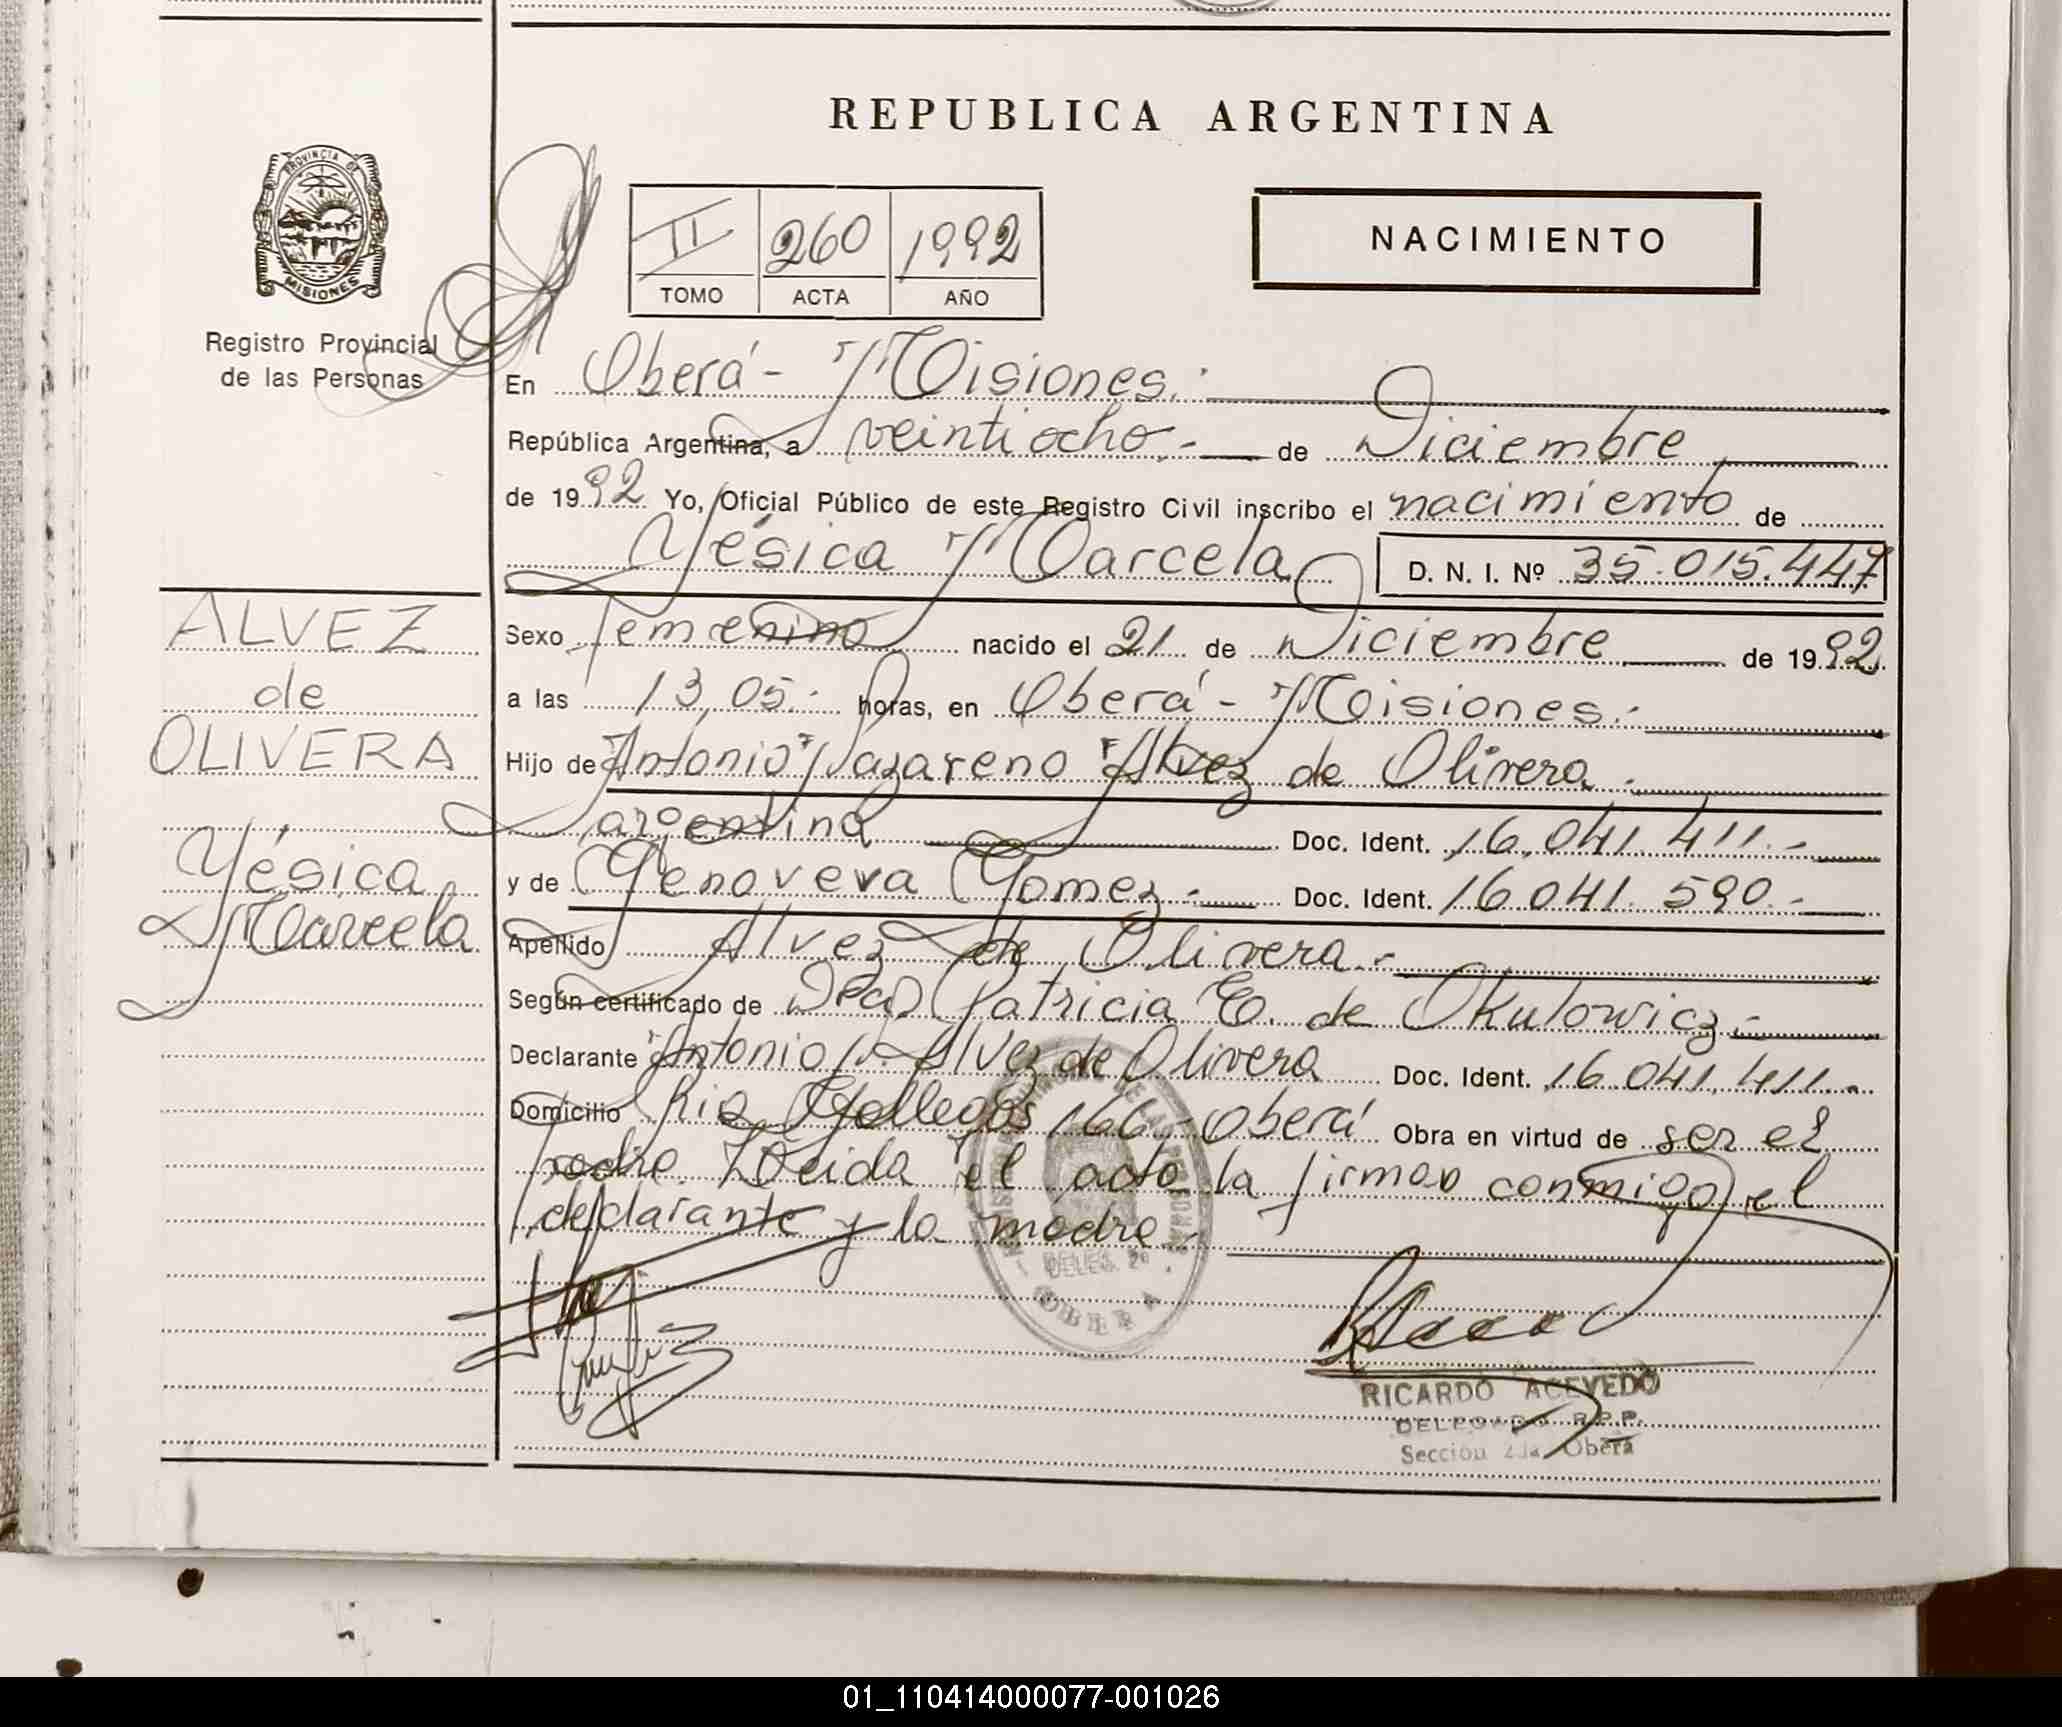 REPUBLICA ARGENTINA
PROVINCIA DE
MISIONES
Registro Provincial
de las Personas
II 260 1992
TOMO ACTA AÑO
NACIMIENTO
En Oberá - Misiones.-
República Argentina, a veintiocho.- de Diciembre
de 1992 Yo, Oficial Público de este Registro Civil inscribo el nacimiento de
Yésica Marcela D. N. I. Nº 35.015.447
Sexo femenino nacido el 21 de Diciembre de 1992
a las 13,05.- horas, en Oberá - Misiones.-
Hijo de Antonio Nazareno Alvez de Olivera.-
argentina Doc. Ident. 16.041.411.-
y de Genoveva Gomez.- Doc. Ident. 16.041.590.-
Apellido Alvez de Olivera.-
Según certificado de Dra. Patricia E. de Okulowicz.-
Declarante Antonio N. Alvez de Olivera Doc. Ident. 16.041.411.-
Domicilio Rio Gallegos 166,- Oberá Obra en virtud de ser el
padre. Leida el acta la firman conmigo el
declarante y la madre.-
ALVEZ
de
OLIVERA
Yésica
Marcela
DELEG.
OBERA
RICARDO ACEVEDO
DELEGADO R.P.P.
Sección 2da Oberá
01_110414000077-001026